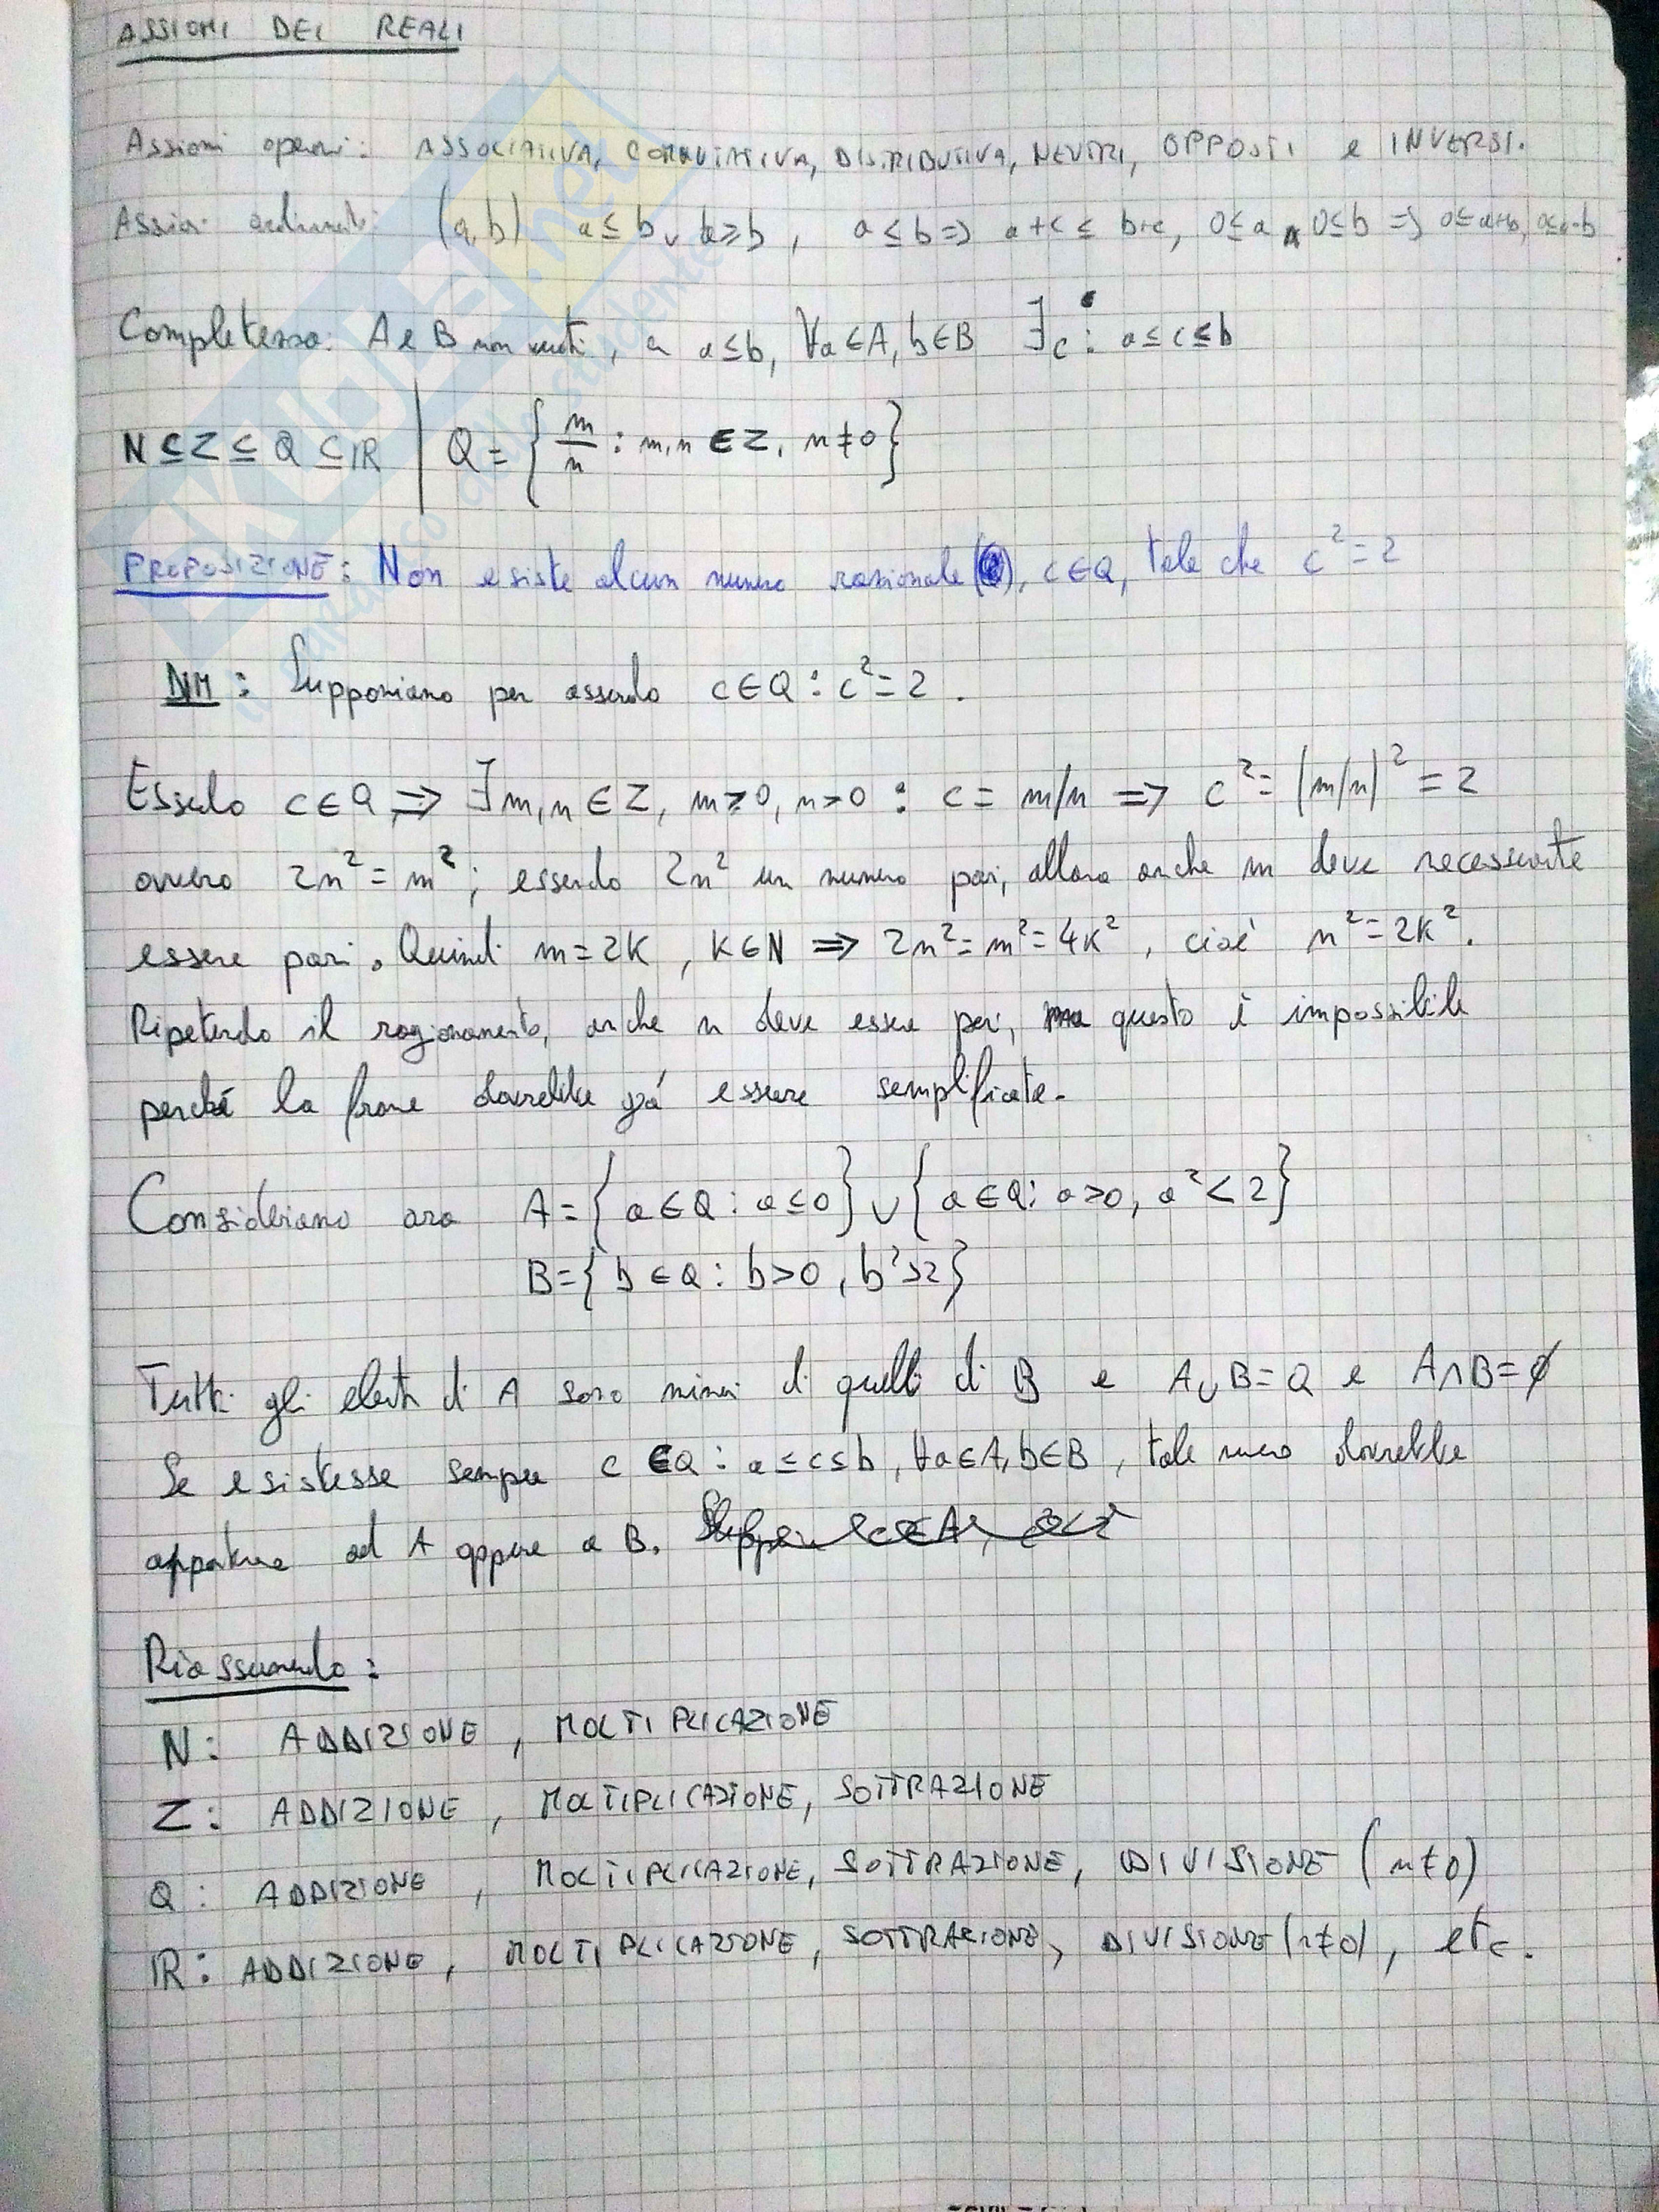 ASSIOMI DEI REALI
Assiomi operai: ASSOCIATIVA, COMMUTATIVA, DISTRIBUTIVA, NEUTRI, OPPOSTI e INVERSI.
(a,b) a≤b ∨ a≥b, a≤b => a+c ≤ b+c, 0≤a ∧ 0≤b => 0≤a+b, 0≤a·b
Completezza: A e B non vuoti, a≤b, ∀a∈A, b∈B ∃c: a≤c≤b
N⊆Z⊆Q⊆ℝ | Q = { m/n : m,n ∈ Z, n≠0 }
PROPOSIZIONE: Non esiste alcun numero razionale, c∈Q, tale che c²=2
DIM: Supponiamo per assurdo c∈Q : c²=2.
Essendo c∈Q => ∃m,n∈Z, m≥0, n>0 : c = m/n => c² = (m/n)² = 2
ovvero 2n² = m²; essendo 2n² un numero pari, allora anche m deve necessariamente
essere pari. Quindi m=2K, K∈N => 2n²=m²=4K², cioé n²=2K².
Ripetendo il ragionamento, anche n deve essere pari, ma questo è impossibile
perché la frazione dovrebbe già essere semplificata.
Consideriamo ora A={a∈Q: a≤0}∪{a∈Q: a>0, a²<2}
B={b∈Q: b>0, b²>2}
Tutti gli elementi di A sono minori di quelli di B e A∪B=Q e A∩B=∅
Se esistesse sempre c∈Q: a≤c≤b, ∀a∈A, b∈B, tale numero dovrebbe
appartenere ad A oppure a B.
Riassumendo:
N: ADDIZIONE, MOLTIPLICAZIONE
Z: ADDIZIONE, MOLTIPLICAZIONE, SOTTRAZIONE
Q: ADDIZIONE, MOLTIPLICAZIONE, SOTTRAZIONE, DIVISIONE (n≠0)
ℝ: ADDIZIONE, MOLTIPLICAZIONE, SOTTRAZIONE, DIVISIONE (n≠0), etc.